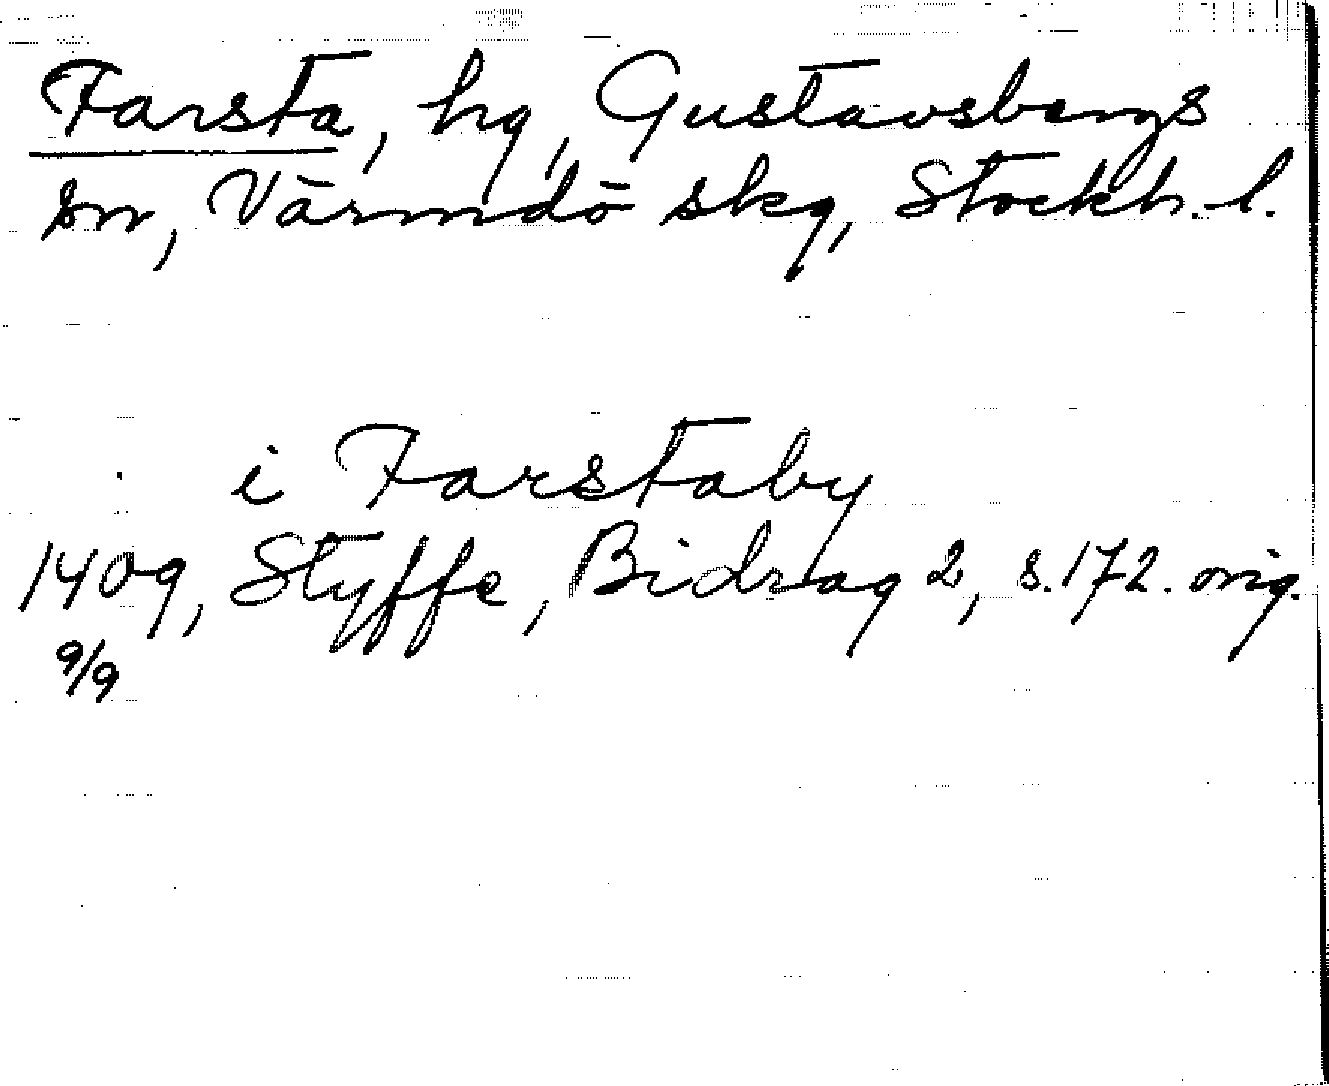 Farsta, hg, Gustavsbergs
sn, Värmdö skg, Stockh. l.
i Farstaby
1409, Styffe, Bidrag 2, s. 172. orig.
9/9